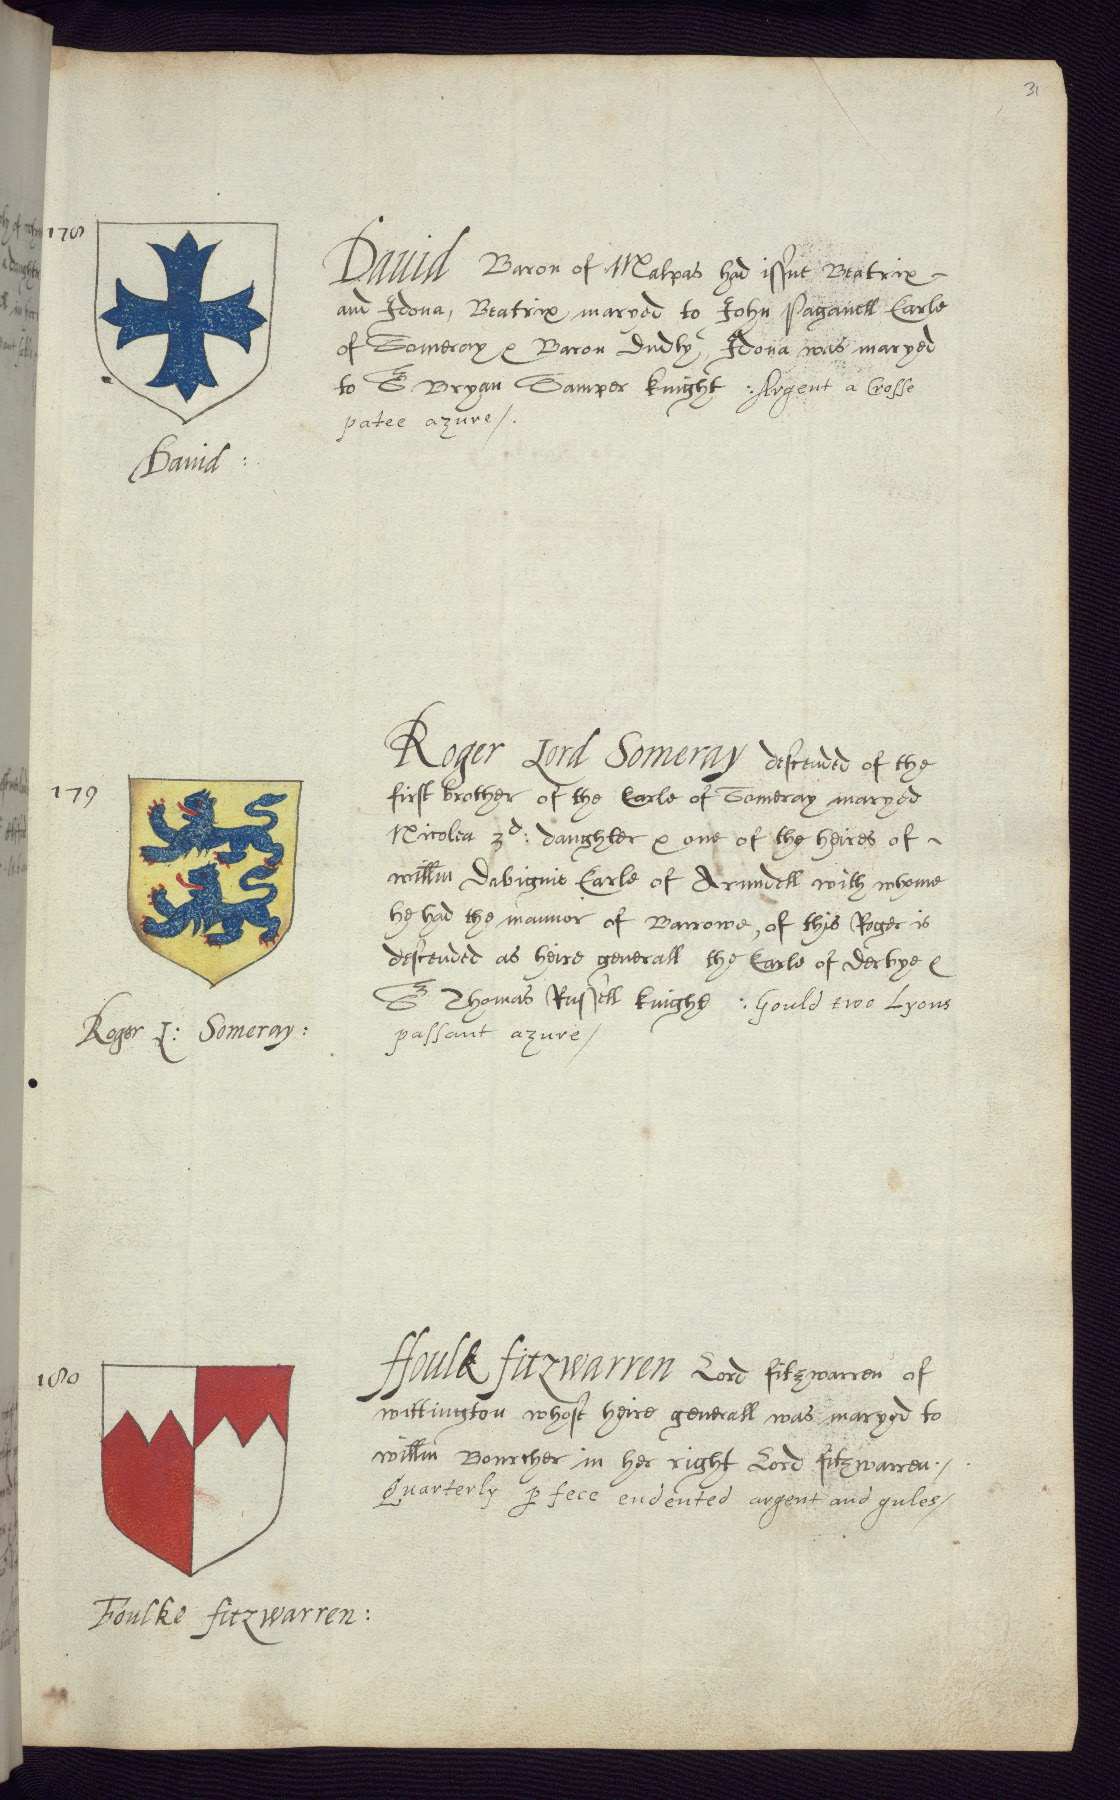 31
178
Dauid Baron of Malpas had issue Beatrix
and Idona, Beatrix maryed to John Paganell Earle
of Someray & Baron Dudly, Idona was maryed
to Sr Bryan Samper knight : Argent a Crosse
patee azure/.
Dauid :
179
Roger Lord Someray descended of the
first brother of the Earle of Someray maryed
Nicolea 3d: daughter & one of the heires of
willm Dabignie Earle of Arundell with whome
he had the mannor of Barrowe, of this Roger is
descended as heire generall the Earle of Derbye &
Sr Thomas Russell knight : Gould two Lyons
passant azure/
Roger L: Someray :
180
ffoulk fitzwarren Lord fitzwarren of
wittington whose heire generall was maryed to
willm Bourcher in her right Lord fitzwarren./.
Quarterly p fece endented argent and gules/
Foulke fitzwarren :